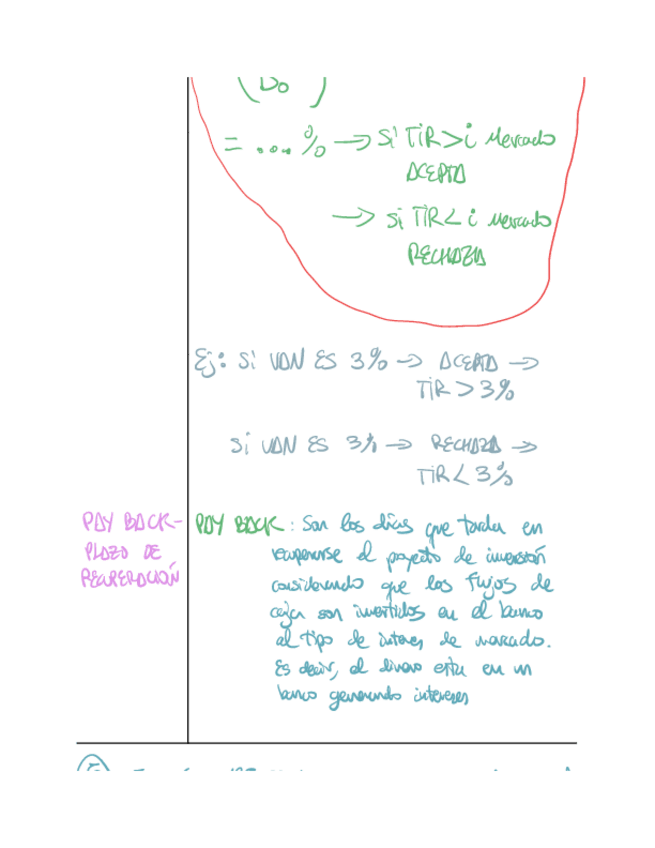 (Do)
= ...% → Si TiR>i Mercado
ACEPTA
→ si TiR< i Mercado
RECHAZA
Ej: Si VAN ES 3% → ACEPTA →
TiR > 3%
Si VAN ES 3% → RECHAZA →
TiR < 3%
PAY BACK-
PLAZO DE
RECUPERACIÓN
PAY BACK: Son los días que tarda en
recuperarse el proyecto de inversión
considerando que los flujos de
caja son invertidos en el banco
al tipo de interes de mercado.
Es decir, el dinero esta en un
banco generando intereses